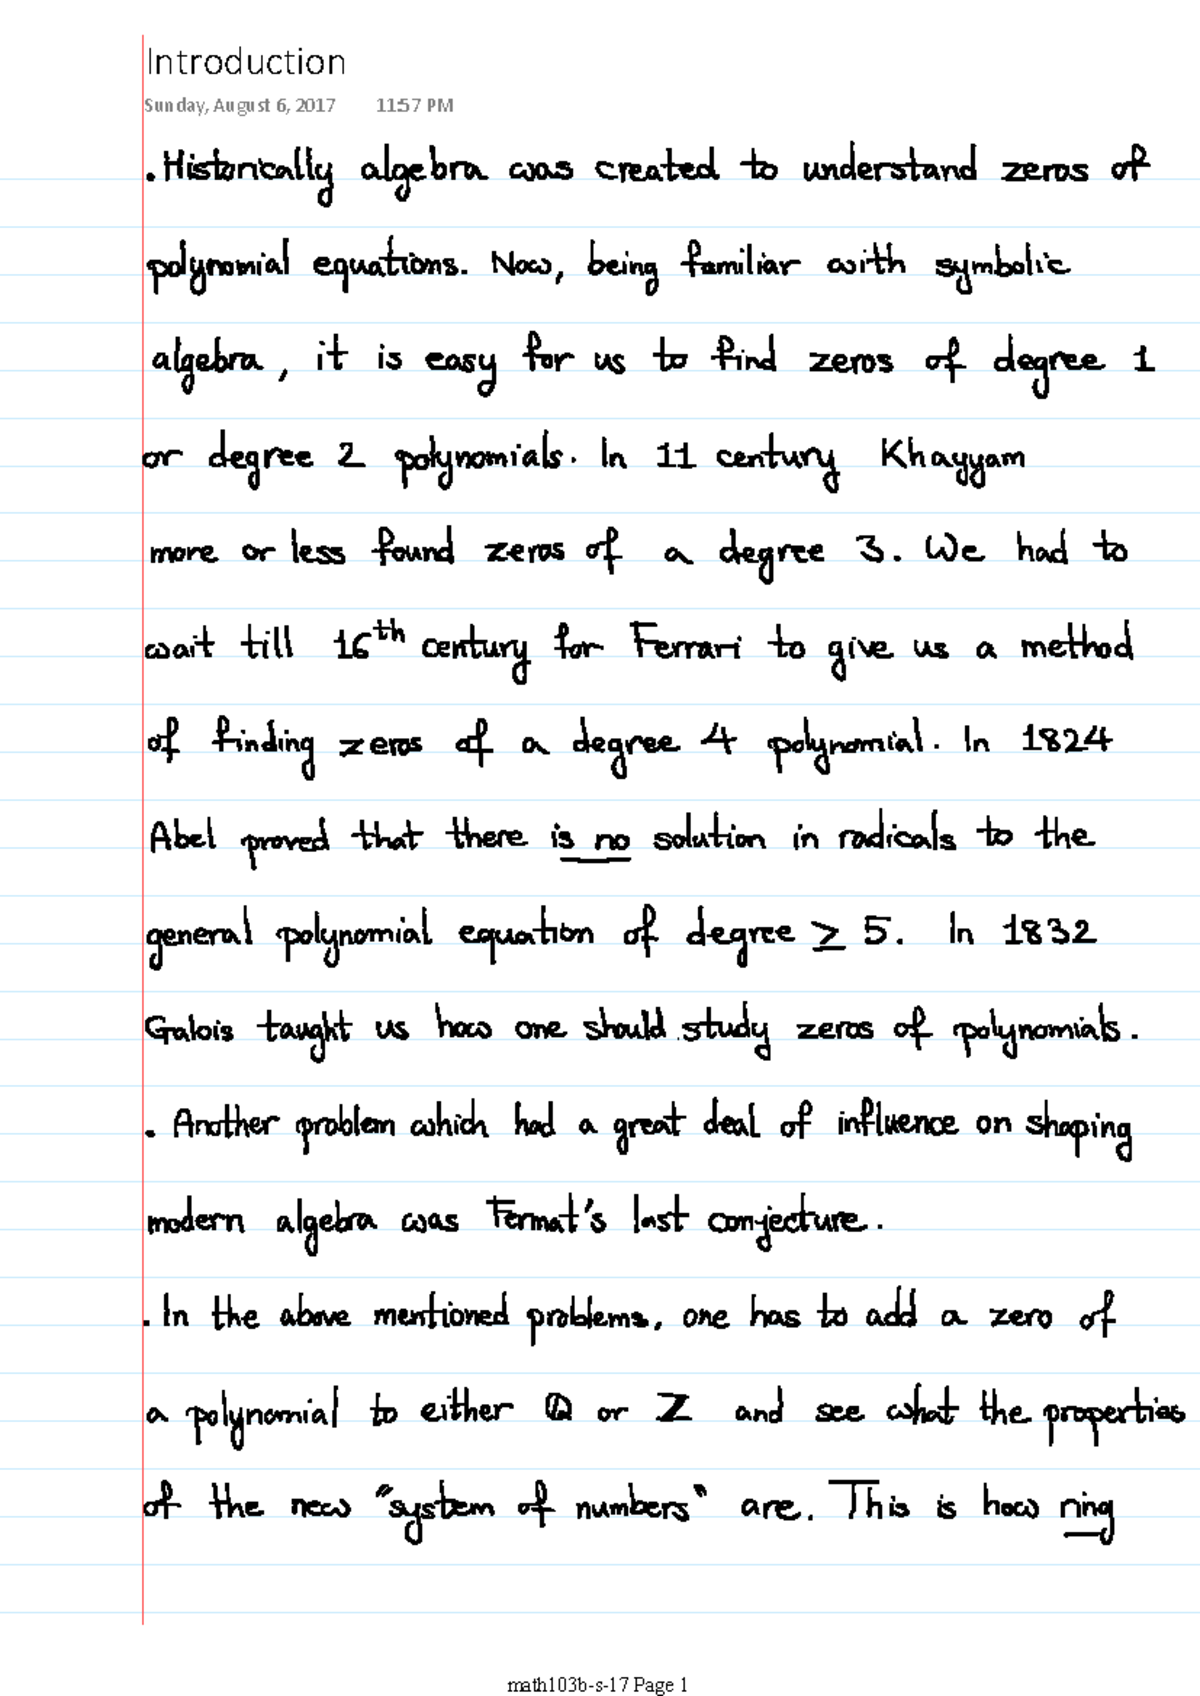 Introduction
Sunday, August 6, 2017 11:57 PM
. Historically algebra was created to understand zeros of
polynomial equations. Now, being familiar with symbolic
algebra, it is easy for us to find zeros of degree 1
or degree 2 polynomials. In 11 century Khayyam
more or less found zeros of a degree 3. We had to
wait till 16th century for Ferrari to give us a method
of finding zeros of a degree 4 polynomial. In 1824
Abel proved that there is no solution in radicals to the
general polynomial equation of degree ≥ 5. In 1832
Galois taught us how one should study zeros of polynomials.
. Another problem which had a great deal of influence on shaping
modern algebra was Fermat's last conjecture.
. In the above mentioned problems, one has to add a zero of
a polynomial to either ℚ or ℤ and see what the properties
of the new "system of numbers" are. This is how ring
math103b-s-17 Page 1